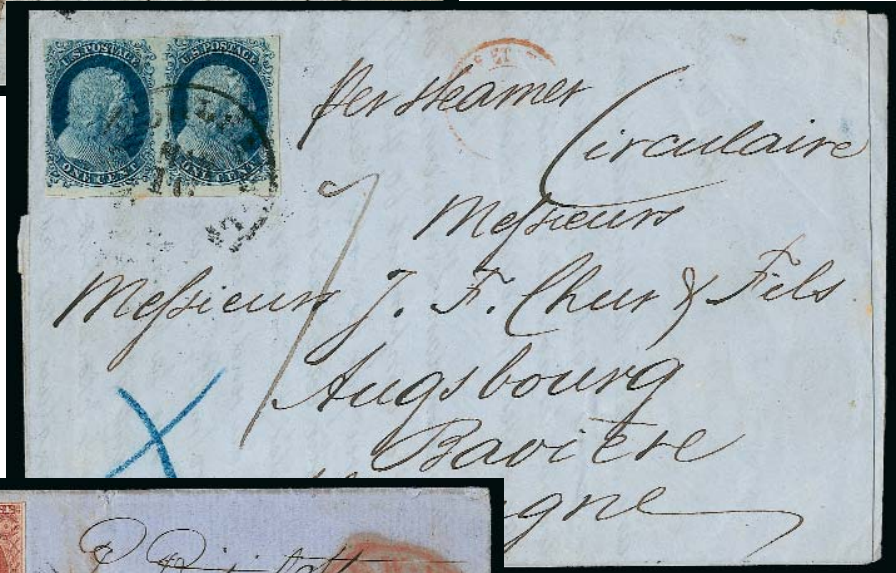 U.S. POSTAGE U.S. POSTAGE
ONE CENT ONE CENT
Per Steamer
Circulaire
Messieurs
Messieurs J. F. Chur & Fils
Augsbourg
Bavière
gne